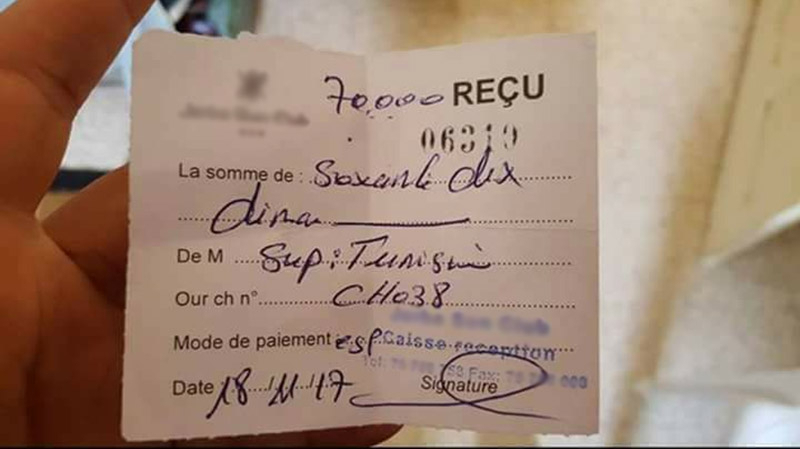 70,000 REÇU
06319
La somme de : Soixante dix
dinar
De M Sup: Tunisie
Our ch n° CH038
Mode de paiement : esp
Caisse reception
Date 18/11/17 Signature